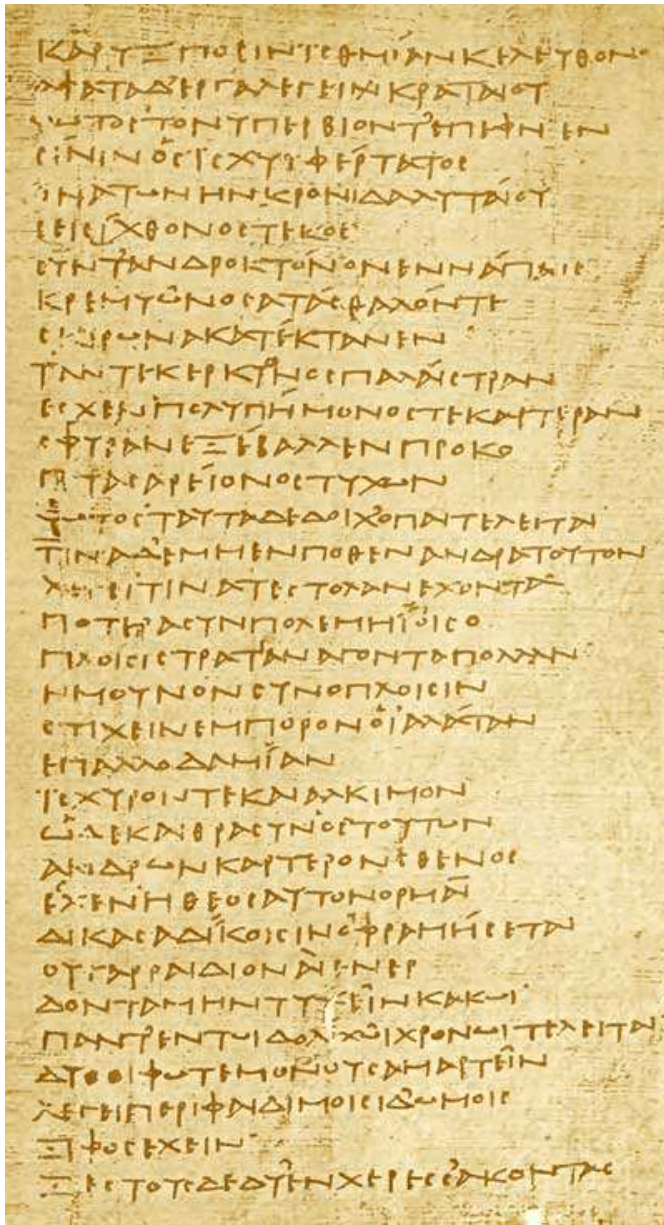 ΚΑΡΥΞΠΟCΙΝΙCΘΜΙΑΝΚΕΛΕΥΘΟΝ·
ΑΦΑΤΑΔΕΡΓΑΛΕΓΕΙΚΡΑΤΑΙΟΥ
ΦΩΤΟCΤΟΝΥΠΕΡΒΙΟΝΤ'ΕΠΕΦΝΕΝ
CΙΝΙΝΟCΙCΧΥΙΦΕΡΤΑΤΟC
ΘΝΑΤΩΝΗΝΚΡΟΝΙΔΑΛΥΤΑΙΟΥ
CΕΙCΙΧΘΟΝΟCΤΕΚΟC·
CΥΝΤ'ΑΝΔΡΟΚΤΟΝΟΝΕΝΝΑΠΑΙC
ΚΡΕΜΥΩΝΟCΑΤΑCΘΑΛΟΝΤΕ
CΚΙΡΩΝΑΚΑΤΕΚΤΑΝΕΝ·
ΤΑΝΤΕΚΕΡΚΥΟΝΟCΠΑΛΑΙCΤΡΑΝ
ΕCΧΕΝΠΟΛΥΠΗΜΟΝΟCΤΕΚΑΡΤΕΡΑΝ
CΦΥΡΑΝΕΞΕΒΑΛΛΕΝΠΡΟΚΟ
ΠΤΑCΑΡΕΙΟΝΟCΤΥΧΩΝ
ΦΩΤΟCΤΑΥΤΑΔΕΔΟΙΧΟΠΑΙΤΕΛΕΙΤΑΙ
ΤΙΝΑΔΕΜΜΕΝΠΟΘΕΝΑΝΔΡΑΤΟΥΤΟΝ
ΛΕΓΕΙΤΙΝΑΤΕCΤΟΛΑΝΕΧΟΝΤΑ
ΠΟΤΕΡΑCΥΝΠΟΛΕΜΗΪΟΙCΟ
ΠΛΟΙCΙCΤΡΑΤΙΑΝΑΓΟΝΤΑΠΟΛΛΑΝ·
ΗΜΟΥΝΟΝCΥΝΟΠΛΟΙCΙΝ
CΤΙΧΕΙΝΕΜΠΟΡΟΝΟΙ'ΑΛΑΤΑΝ
ΕΠΑΛΛΟΔΑΜΙΑΝ
ΙCΧΥΡΟΝΤΕΚΑΙΑΛΚΙΜΟΝ
ΩΔΕΚΑΙΘΡΑCΥΝΟCΤΟΥΤΩΝ
ΑΝΔΡΩΝΚΑΡΤΕΡΟΝCΘΕΝΟC
ΕCΧΕΝΗΘΕΟCΑΥΤΟΝΟΡΜΑΙ
ΔΙΚΑCΑΔΙΚΟΙCΙΝΟΦΡΑΜΗCΕΤΑΙ
ΟΥΓΑΡΡΑΙΔΙΟΝΑΙΕΝΕΡ
ΔΟΝΤΑΜΗΝΤΥΧΕΙΝΚΑΚΩΙ·
ΠΑΝΤ'ΕΝΤΩΙΔΟΛΙΧΩΙΧΡΟΝΩΙΤΕΛΕΙΤΑΙ
ΔΥΟΟΙΦΩΤΕΜΟΝΟΥCΑΜΑΡΤΕΙΝ
ΛΕΓΕΙΠΕΡΙΦΑΙΔΙΜΟΙCΙΔ'ΩΜΟΙC
ΞΙΦΟCΕΧΕΙΝ·
ΞΕCΤΟΥCΔΕΔΥ'ΕΝΧΕΡΕCC'ΑΚΟΝΤΑC